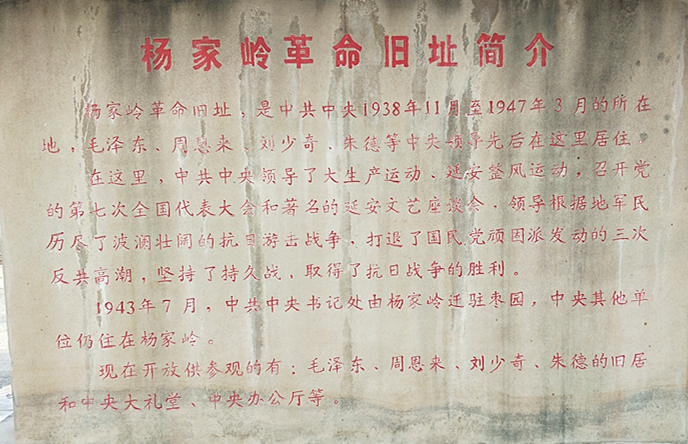 杨家岭革命旧址简介
杨家岭革命旧址，是中共中央1938年11月至1947年3月的所在
地，毛泽东、周恩来、刘少奇、朱德等中央领导先后在这里居住。
在这里，中共中央领导了大生产运动、延安整风运动，召开党
的第七次全国代表大会和著名的延安文艺座谈会，领导根据地军民
历尽了波澜壮阔的抗日游击战争，打退了国民党顽固派发动的三次
反共高潮，坚持了持久战，取得了抗日战争的胜利。
1943年7月，中共中央书记处由杨家岭迁驻枣园，中央其他单
位仍住在杨家岭。
现在开放供参观的有：毛泽东、周恩来、刘少奇、朱德的旧居
和中央大礼堂、中央办公厅等。